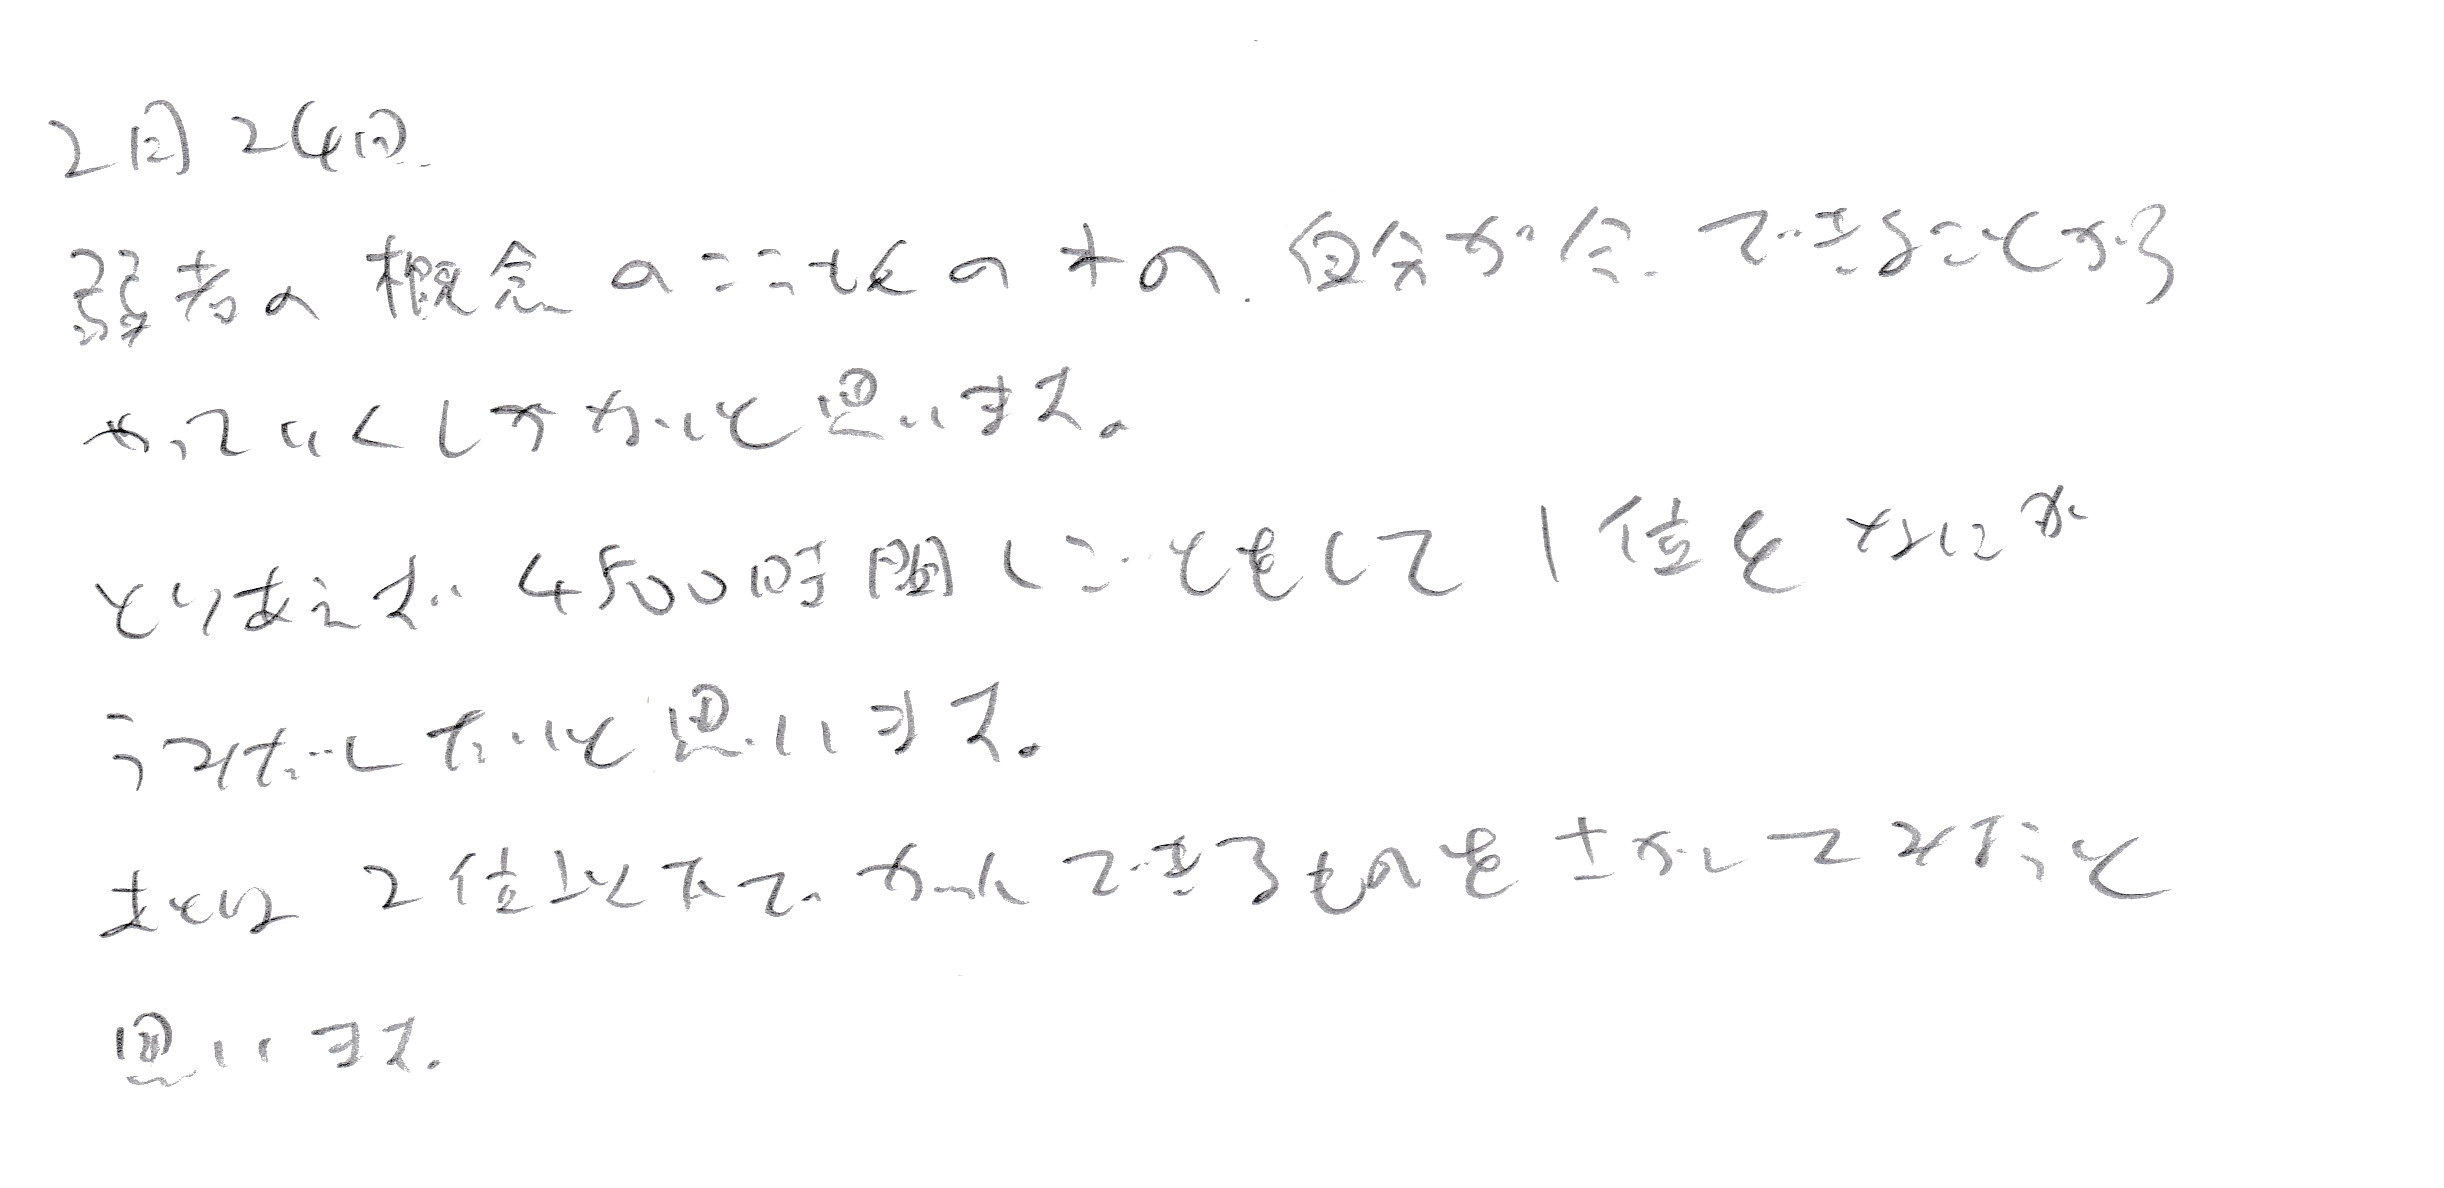 2回24回
弱者の概念の 自分が今できることから
やっていくしかないと思います。
とりあえず4500時間しごとをして1位をなにか
うみだしたいと思います。
あとは2位以下で できるものをさがしてみようと
思います。